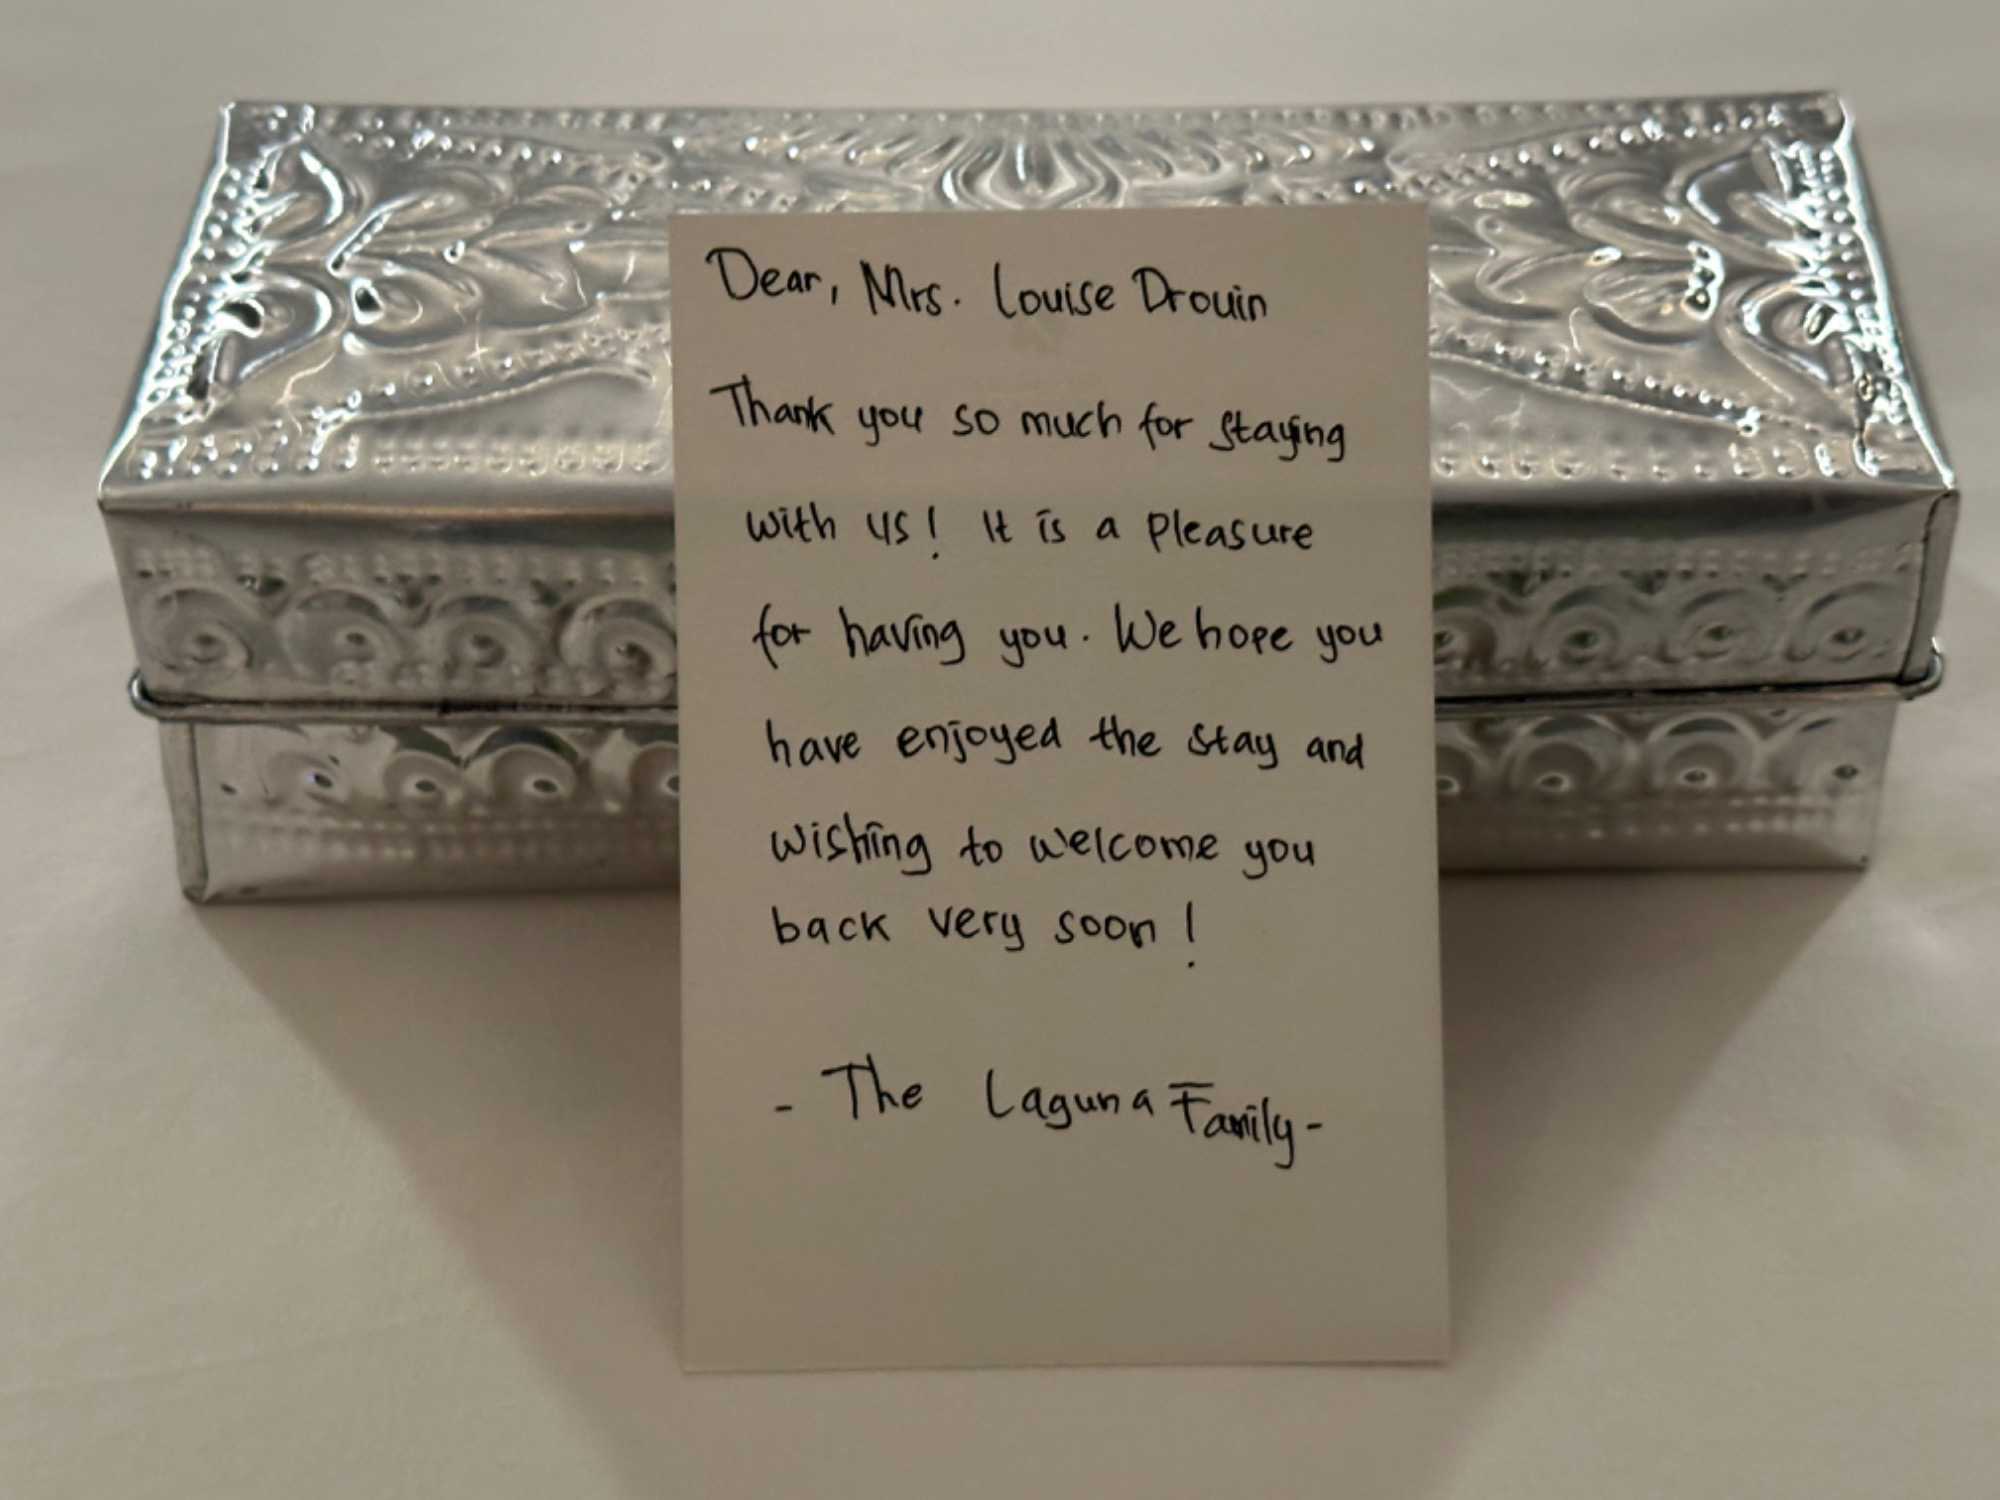 Dear, Mrs. Louise Drouin
Thank you so much for staying
with us! It is a pleasure
for having you. We hope you
have enjoyed the stay and
wishing to welcome you
back very soon!
- The Laguna Family -